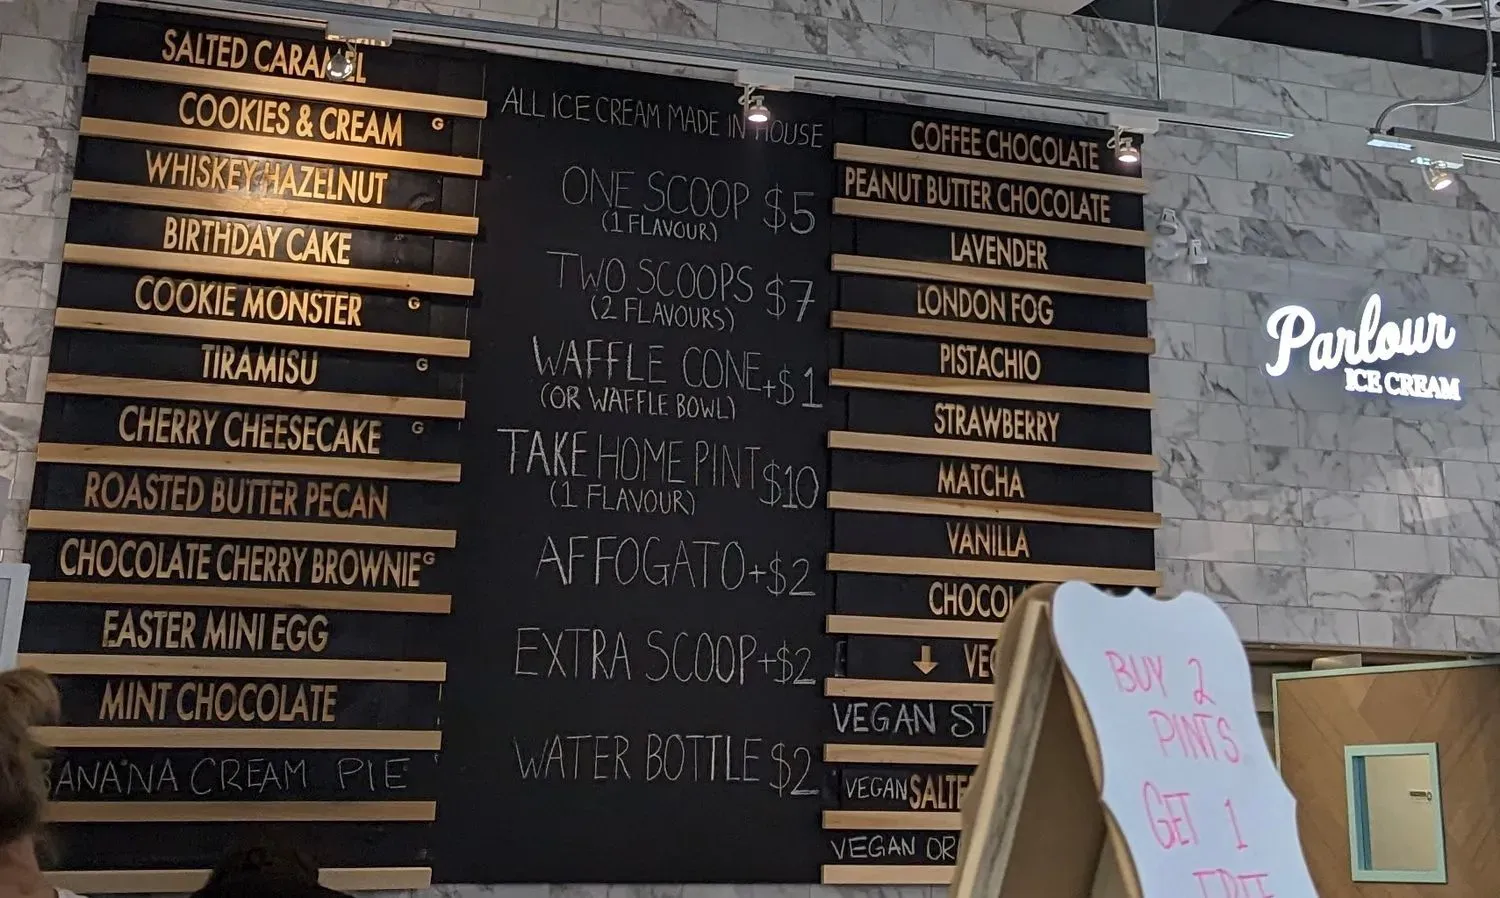 SALTED CARAMEL
COOKIES & CREAM G
WHISKEY HAZELNUT
BIRTHDAY CAKE
COOKIE MONSTER G
TIRAMISU G
CHERRY CHEESECAKE G
ROASTED BUTTER PECAN
CHOCOLATE CHERRY BROWNIE G
EASTER MINI EGG
MINT CHOCOLATE
BANANA CREAM PIE
ALL ICE CREAM MADE IN HOUSE
ONE SCOOP $5
(1 FLAVOUR)
TWO SCOOPS $7
(2 FLAVOURS)
WAFFLE CONE +$1
(OR WAFFLE BOWL)
TAKE HOME PINT $10
(1 FLAVOUR)
AFFOGATO +$2
EXTRA SCOOP +$2
WATER BOTTLE $2
COFFEE CHOCOLATE
PEANUT BUTTER CHOCOLATE
LAVENDER
LONDON FOG
PISTACHIO
STRAWBERRY
MATCHA
VANILLA
CHOCOL
↓ VEG
VEGAN ST
VEGAN SALTE
VEGAN OR
Parlour
ICE CREAM
BUY 2
PINTS
GET 1
FREE